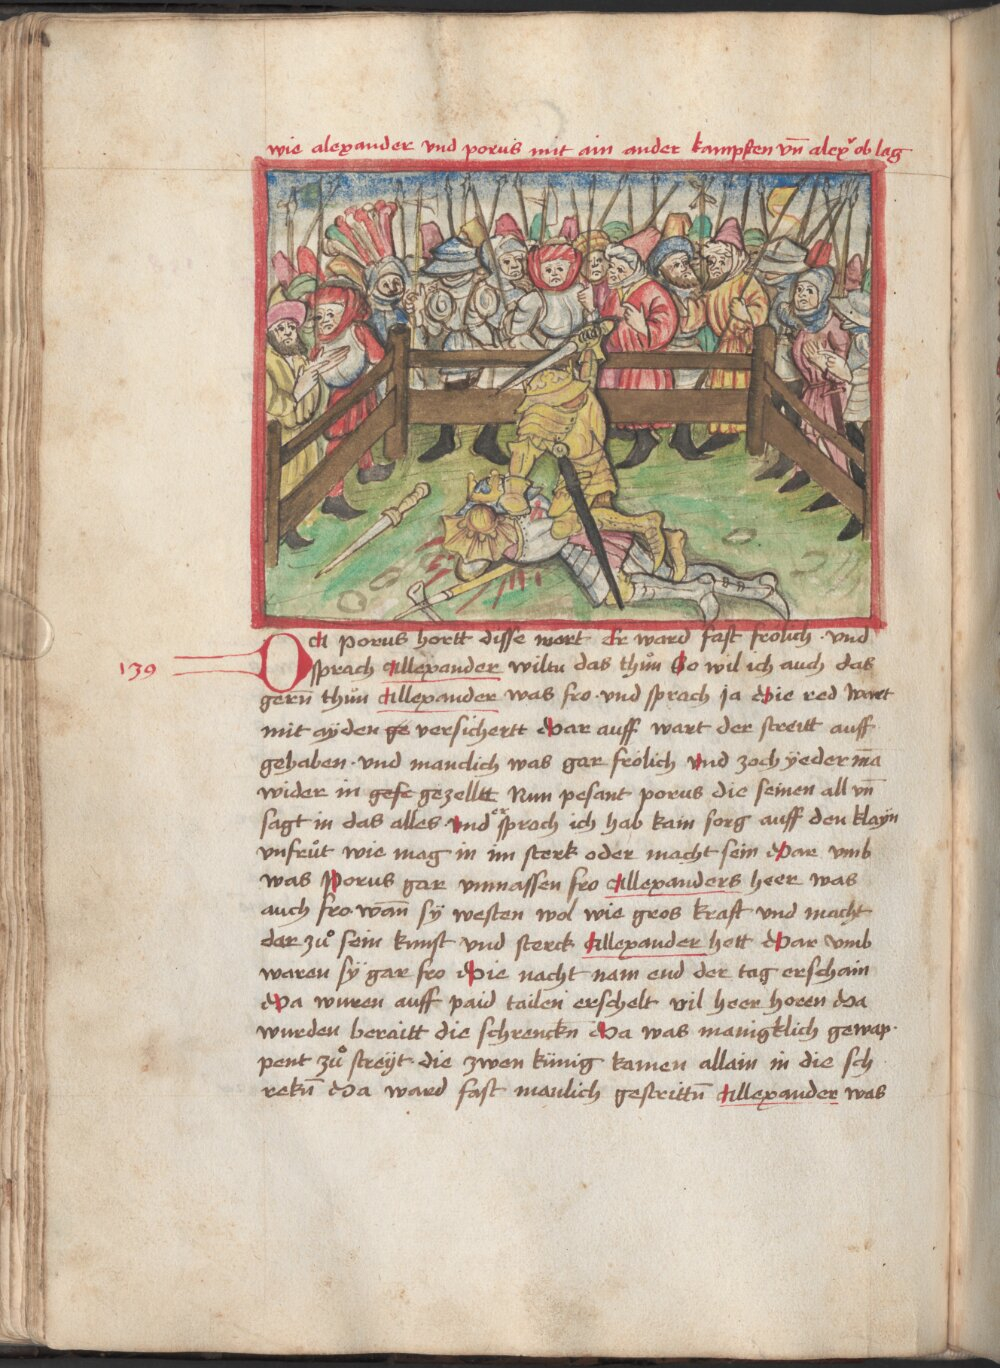 wie alexander vnd porus mit ain ander kampften vn̄ alexr ob lag
Da porus hortt disse wort Er ward fast frolich · vnd
139
sprach Allexander wiltu das thůn So wil ich auch das
gern̄ thůn Allexander was fro · vnd sprach ja Die red wart
mit aÿden ge versichertt Dar auff wart der streitt auff
gehaben · vnd manclich was gar frölich vnd zoch ÿeder mā
wider in gesc gezelltt Nun pesant porus die seinen all vn̄
sagt in das alles · Vnd er sprach ich hab kain sorg auff den klayn
vnfrůt wie mag in im sterk oder macht sein Dar vmb
was Porus gar vmnassen fro Allexanders heer was
auch fro wan̄ sÿ westen wol wie gros kraft vnd macht
dar zů sein kunst vnd sterck Allexander hett Dar vmb
waren sÿ gar fro Die nacht nam end der tag erschain
Da wuren auff paid tailen erschelt vil heer horen Da
wurden beraitt die schrenckn Da was manigklich gewap·
pent zů streÿt · die zwen künig kamen allain in die sch
rekn̄ Da ward fast manlich gestrittn̄ Allexander was